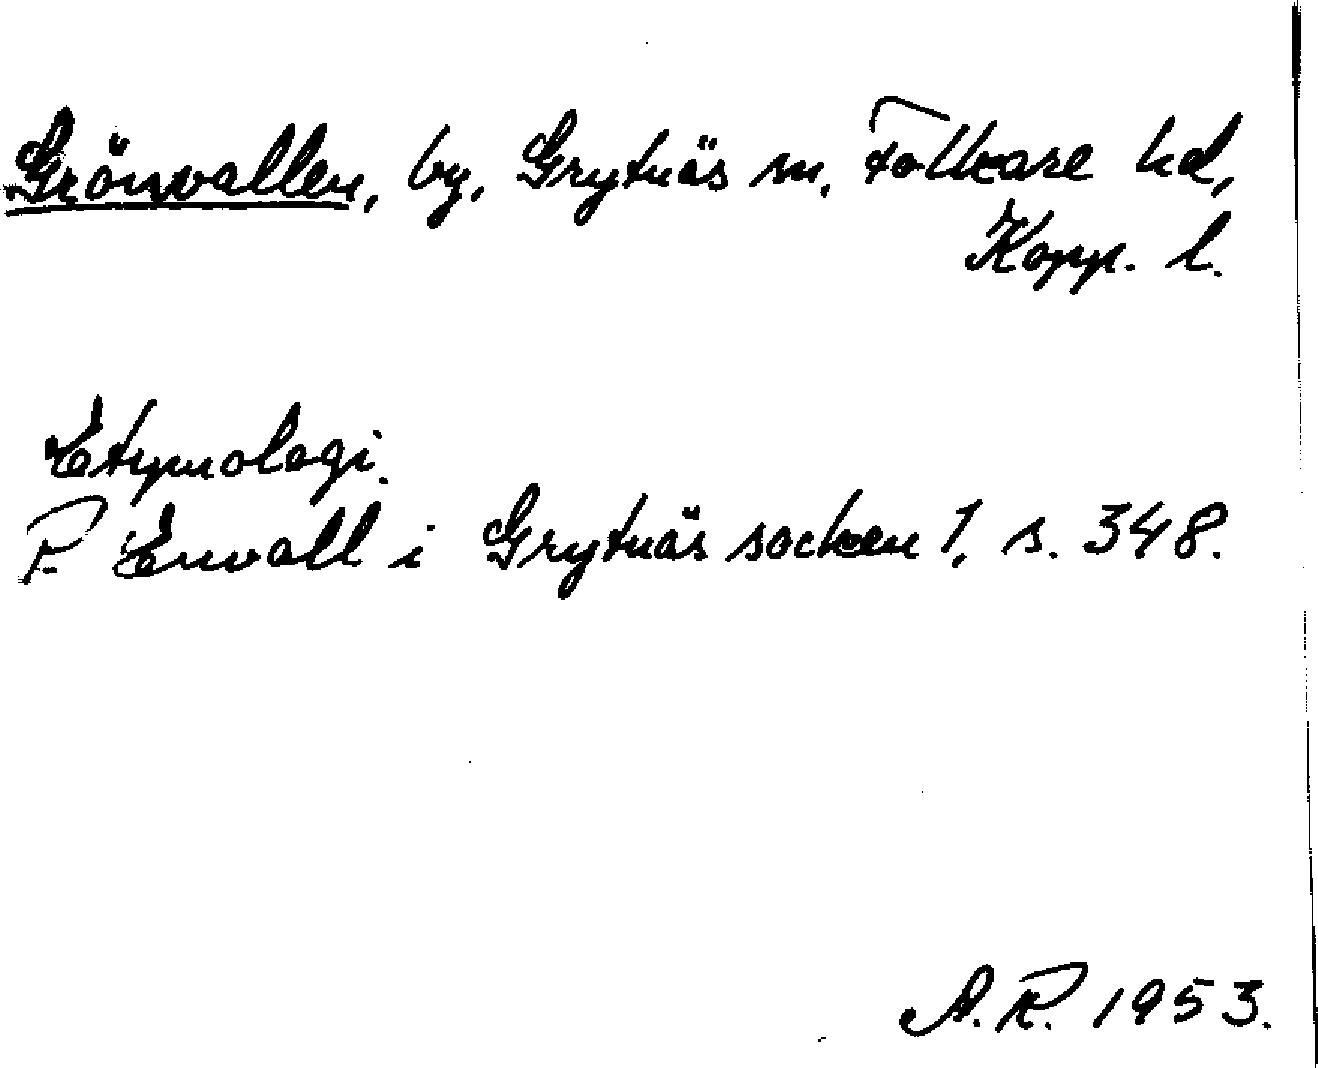 Grönvallen, by, Grytnäs sn, Folkare hd,
Kopp. l.
Etymologi.
P. Envall i Grytnäs socken 1, s. 348.
A.R. 1953.